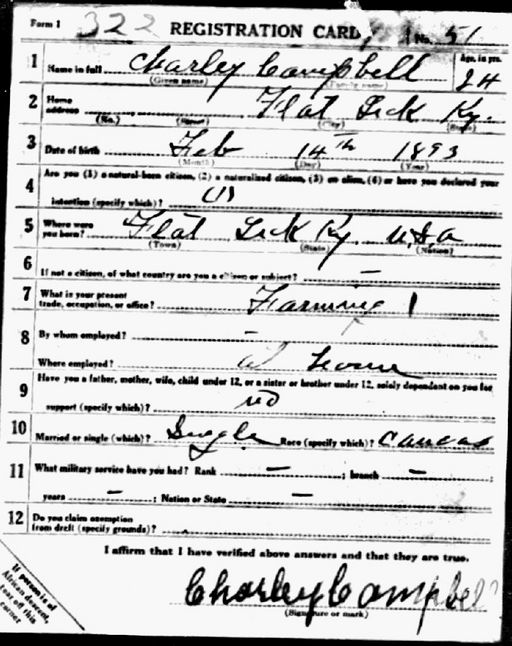 Form 1 322 REGISTRATION CARD No. 51
1 Name in full Charley Campbell Age, in yrs. 24
(Given name) (Family name)
2 Home address Flat Lick Ky.
(No.) (Street) (City) (State)
3 Date of birth Feb 14th 1893
(Month) (Day) (Year)
4 Are you (1) a natural-born citizen, (2) a naturalized citizen, (3) an alien, (4) or have you declared your
intention (specify which)? (1)
5 Where were you born? Flat Lick Ky U.S.A
(Town) (State) (Nation)
6 If not a citizen, of what country are you a citizen or subject? —
7 What is your present trade, occupation, or office? Farming 1
8 By whom employed? —
Where employed? at home
9 Have you a father, mother, wife, child under 12, or a sister or brother under 12, solely dependent on you for
support (specify which)? no
10 Married or single (which)? Single Race (specify which)?
11 What military service have you had? Rank — ; branch — ;
years — ; Nation or State —
12 Do you claim exemption from draft (specify grounds)?
I affirm that I have verified above answers and that they are true.
Charley Campbell
(Signature or mark)
If person is of
African descent,
tear off this
corner